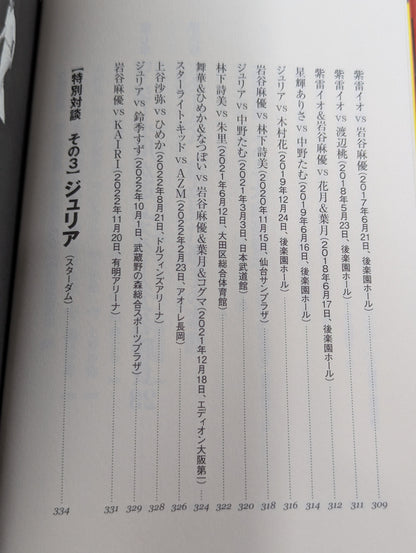 紫雷イオ vs 岩谷麻優(2017年6月21日、後楽園ホール)……309
紫雷イオ vs 渡辺桃(2018年5月23日、後楽園ホール)……311
紫雷イオ&岩谷麻優 vs 花月&葉月(2018年6月17日、後楽園ホール)……312
星輝ありさ vs 中野たむ(2019年6月16日、後楽園ホール)……314
ジュリア vs 木村花(2019年12月24日、後楽園ホール)……316
岩谷麻優 vs 林下詩美(2020年11月15日、仙台サンプラザ)……318
ジュリア vs 中野たむ(2021年3月3日、日本武道館)……320
林下詩美 vs 朱里(2021年6月12日、大田区総合体育館)……322
舞華&ひめか&なつぽい vs 岩谷麻優&葉月&コグマ(2021年12月18日、エディオン大阪第一)……324
スターライト・キッド vs AZM(2022年2月23日、アオーレ長岡)……326
上谷沙弥 vs ひめか(2022年8月21日、ドルフィンズアリーナ)……328
ジュリア vs 鈴季すず(2022年10月1日、武蔵野の森総合スポーツプラザ)……329
岩谷麻優 vs KAIRI(2022年11月20日、有明アリーナ)……331
【特別対談 その3】ジュリア(スターダム)……334